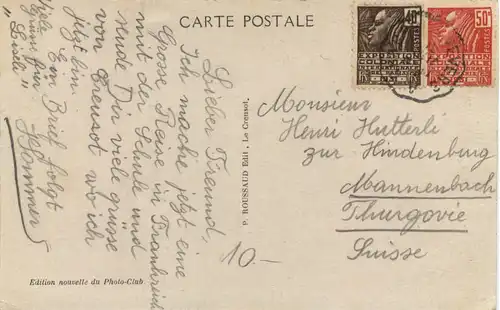 CARTE POSTALE
Lieber Freund,
Ich mache jetzt eine
Grosse Reise in Frankreich
mit der Schule und
sende Dir viele grüsse
von Creusot wo ich
jetzt bin.
Ein Brief folgt
Sommer
Viele
Grüsse für
"Liseli"
P. ROUSSAUD Edit., Le Creusot.
Edition nouvelle du Photo-Club
10.-
40c
POSTES
EXPOSITION
COLONIALE
50c
POSTES
EXPOSITION
COLONIALE
Monsieur
Henri Hutterli
zur Hindenburg
Mannenbach
Thurgovie
Suisse